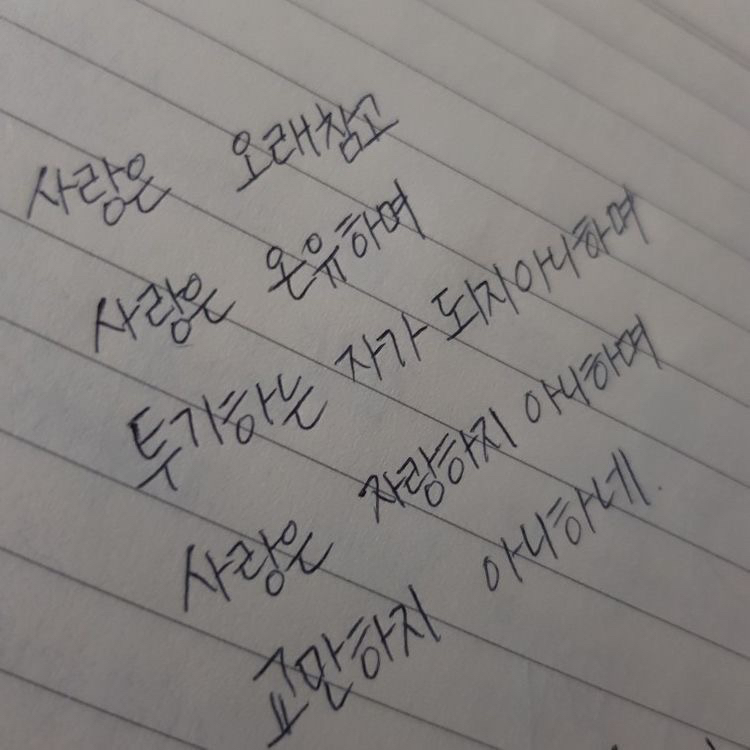 사랑은 오래참고
사랑은 온유하며
투기하는 자가 되지아니하며
사랑은 자랑하지 아니하며
교만하지 아니하네.